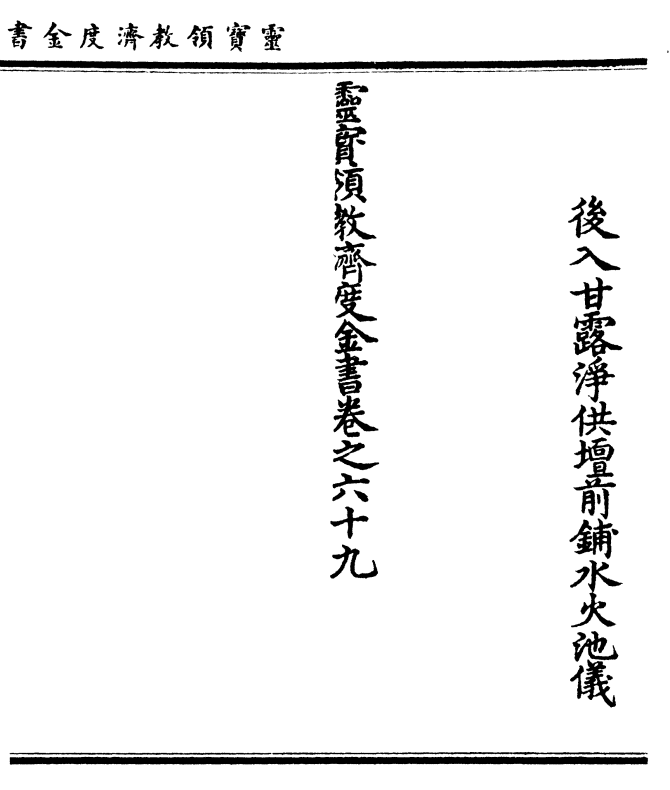 靈寶領教濟度金書
後入甘露淨供壇前鋪水火池儀
靈寶領教濟度金書卷之六十九